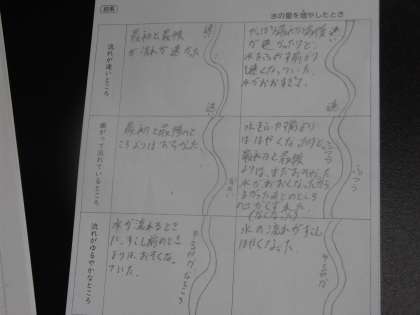 結果
水の量を増やしたとき
流れが速いところ
最初と最後
が流れが速かった
速
速
やっぱり最初と最後
が速かったけど、
水をふやす前より
速くなっていた。
水がおおすぎて。
速
速
曲がって流れているところ
最初と最後のと
ころよりはおそかった
水をふやす前より
ははやくなったけど、
最初と最後
よりは、まだおそかった
水がおおくなったから
ふつう
ふつう
流れがゆるやかなところ
水が流れるとき
に、すこし前のとき
よりは、おそくな
っていた。
ゆるやかなところ
水の流れがすこし
はやくなった。
ゆるやか